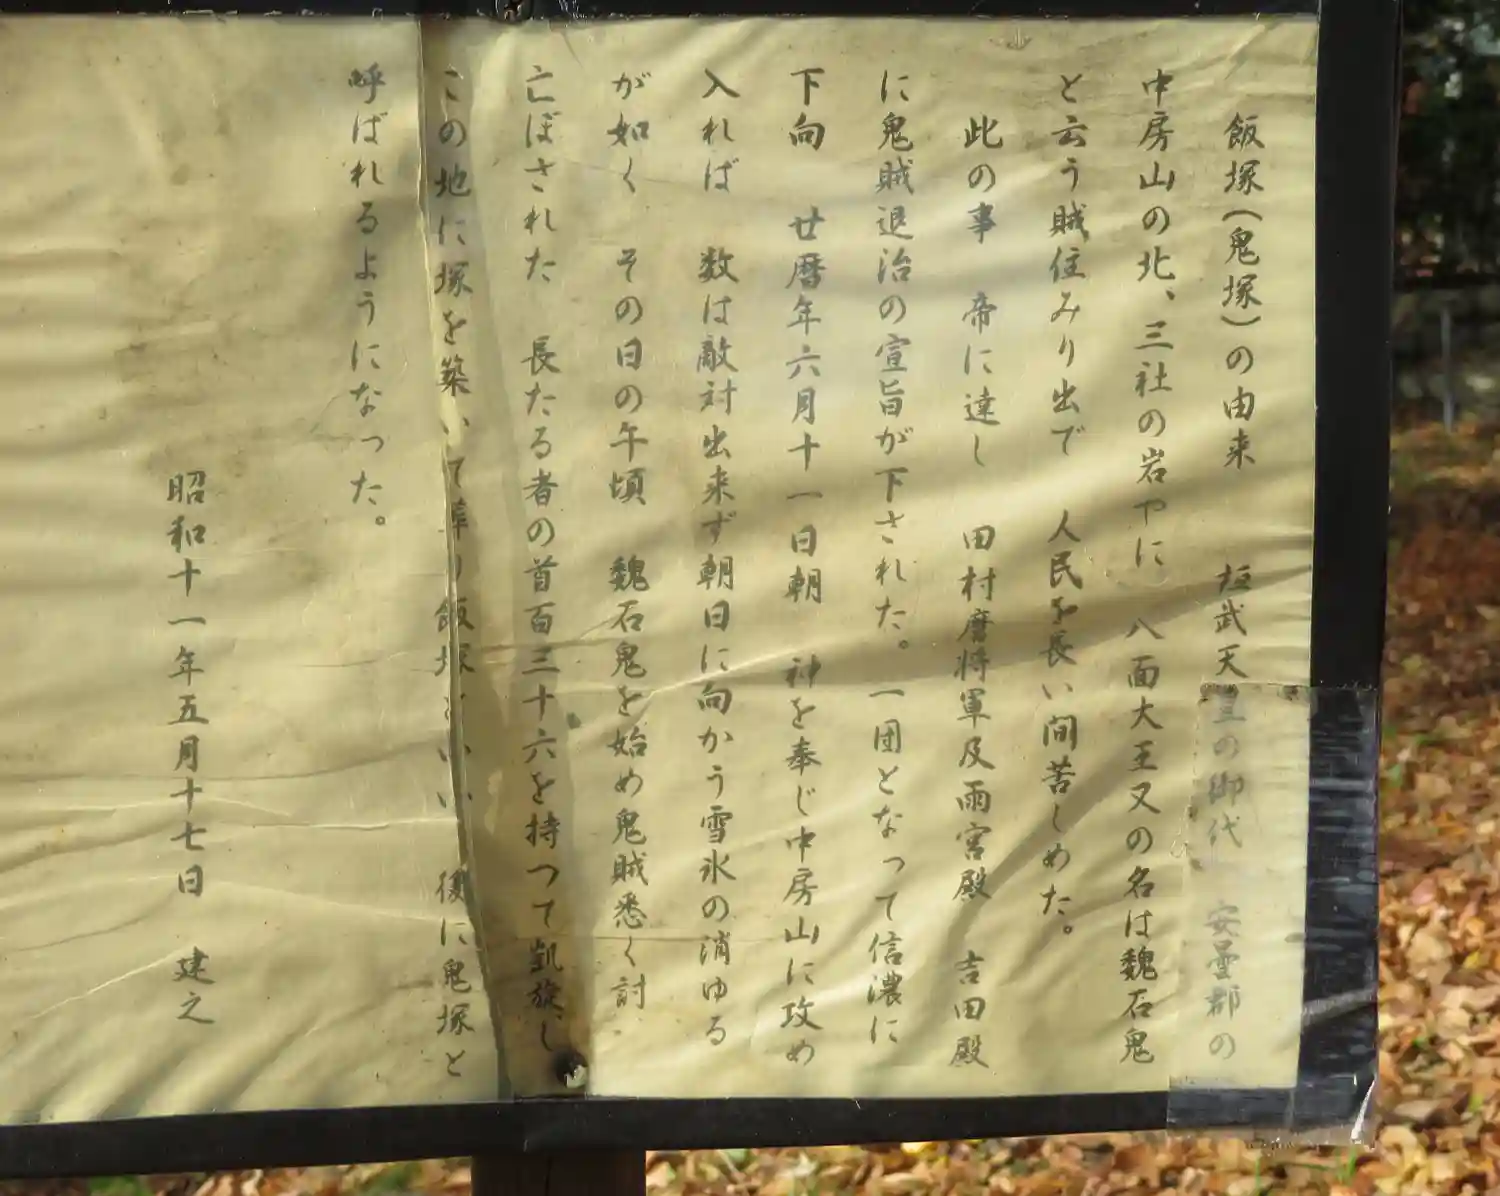 飯塚(鬼塚)の由来　　垣武天皇の御代　安曇郡の
中房山の北、三社の岩やに　八面大王又の名は魏石鬼
と云う賊住みり出で　人民を長い間苦しめた。
此の事　帝に達し　田村麿将軍及雨宮殿　吉田殿
に鬼賊退治の宣旨が下された。一団となって信濃に
下向　廿暦年六月十一日朝　神を奉じ中房山に攻め
入れば　数は敵対出来ず朝日に向かう雪氷の消ゆる
が如く　その日の午頃　魏石鬼を始め鬼賊悉く討
亡ぼされた　長たる者の首百三十六を持つて凱旋し
この地に塚を築いて葬り飯塚といい　後に鬼塚と
呼ばれるようになった。
昭和十一年五月十七日　建之